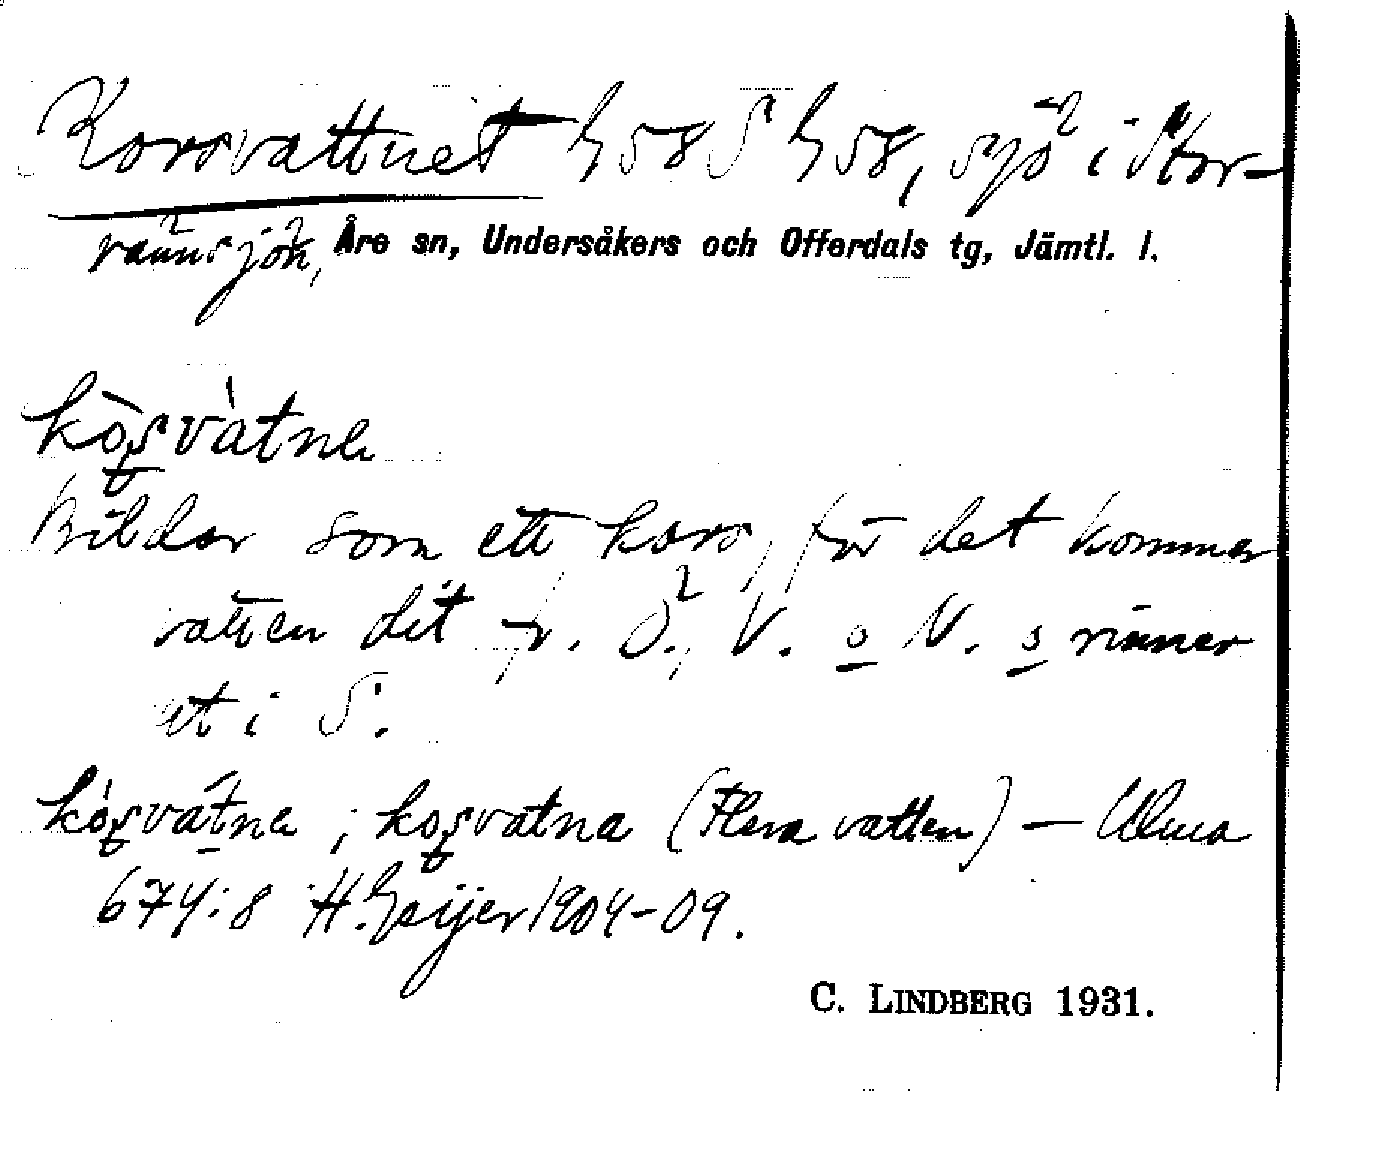 Korsvattnet G 58 S G 58, sjö i Stor-
rännsjön, Åre sn, Undersåkers och Offerdals tg, Jämtl. l.
kòșvàtne
Bildar som ett kors, för det kommer
vatten dit fr. Ö., V. o N. o rinner
ut i S.
kóșvátne ; koșvatna (Flera vatten) — Ulma
674:8 H. Geijer 1904-09.
C. LINDBERG 1931.